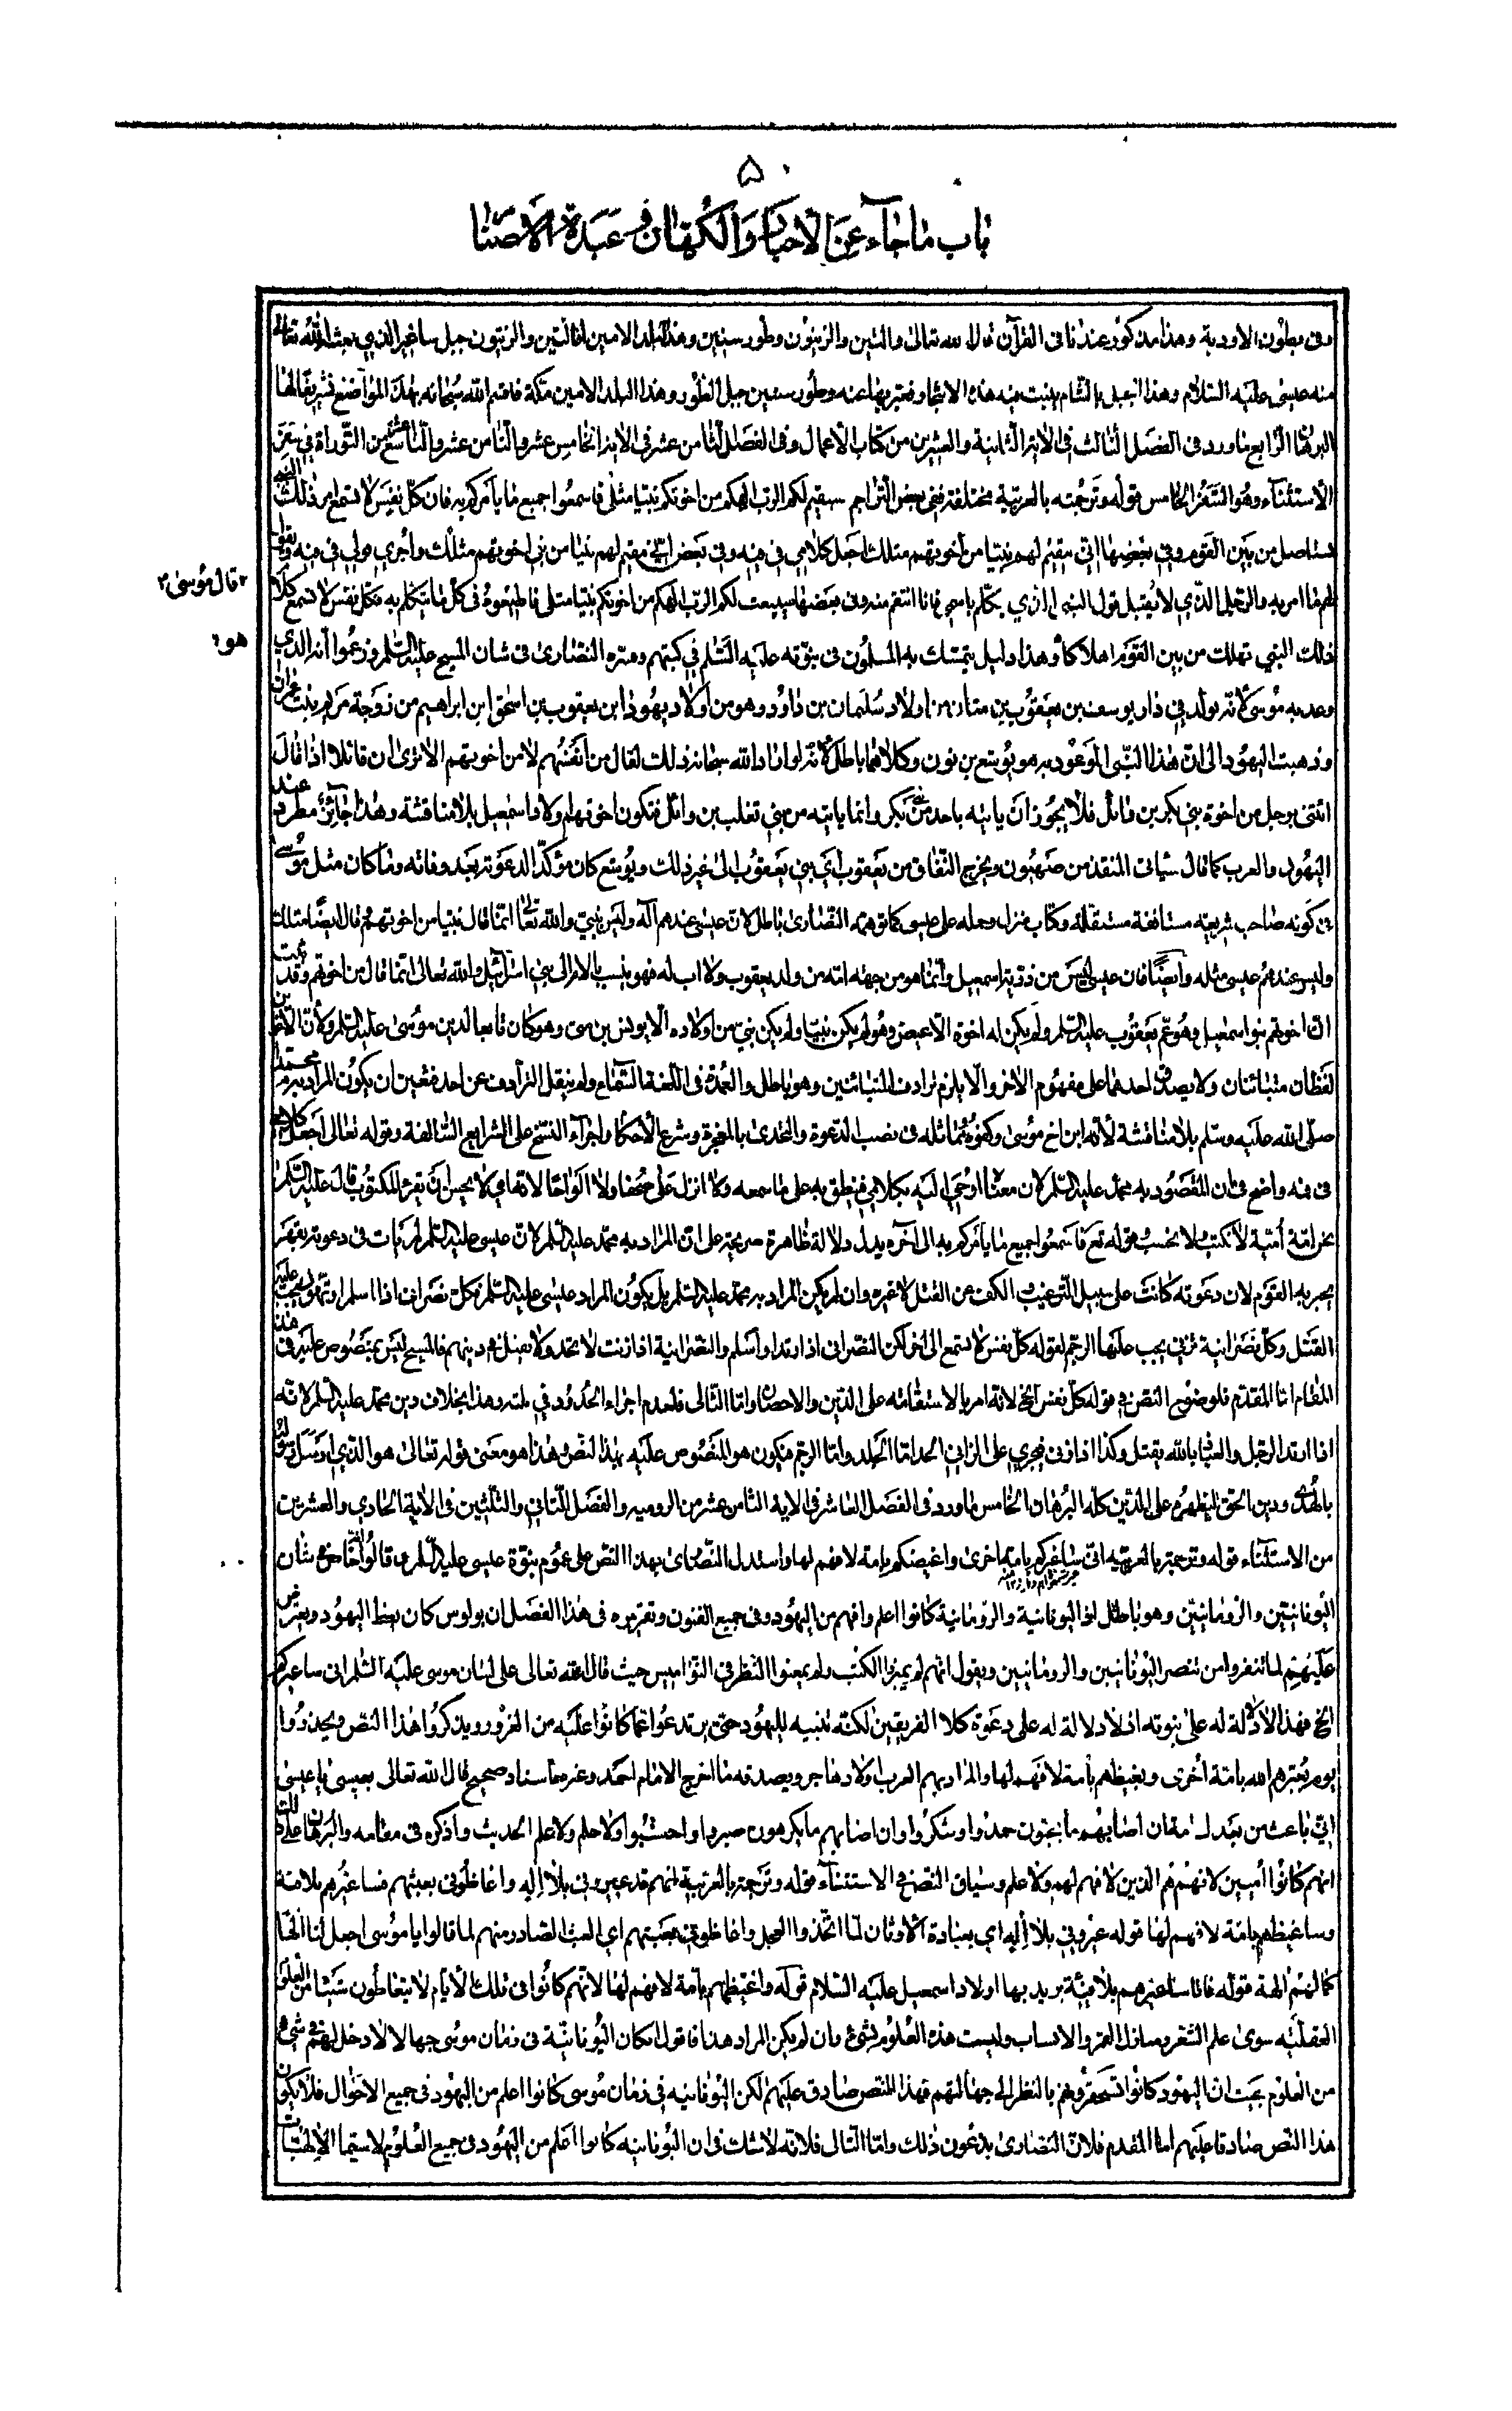 ۵۰
باب ما جاء عن الاحبار والكهان في عبدة الاصنا
وفي بطون الاودية وهذا مذكور عندنا في القرآن قال الله تعالى والتين والزيتون وطور سينين وهذا البلد الامين فالتين والزيتون جبل ساغير الذي بعث الله تعالى
منه عيسى عليه السلام وهذا الجبل بالشام ينبت فيه هذه الاشجار فعبر بها عنه وطور سينين جبل الطور وهذا البلد الامين مكة فاقسم الله سبحانه بهذه المواضع تشريفا لها
البرهان الرابع ما ورد في الفصل الثالث في الاية الثانية والعشرين من كتاب الاعمال وفي الفصل الثامن عشر في الاية الخامس عشر والثامن عشر والتاسع عشر من التوراة في سفر
الاستثناء وهو السفر الخامس قوله وترجمته بالعربية مختلفة ففي بعض التراجم سيقيم لكم الرب الهكم من اخوتكم نبيا مثلي فاسمعوا جميع ما يأمركم به فان كل نفس لا تسمع من ذلك النبي
تستاصل من بين القوم وفي بعضها اني مقيم لهم نبيا من اخوتهم مثلك اجعل كلامي في فيه وفي بعض اني مقيم لهم نبيا من بني اخوتهم مثلك واجري قولي في فيه ويقول
لهم ما امر به والرجل الذي لا يقبل قول النبي الذي يتكلم باسمي فانا انتقم منه وفي بعضها سيبعث لكم الرب الهكم من اخوتكم نبيا مثلي فاطيعوه في كل ما يتكلم به فكل نفس لا تسمع كلام
۲ قال موسى ۲
ذلك النبي تهلك من بين القوم اهلاكا وهذا دليل يتمسك به المسلمون في نبوته عليه السلام في كتبهم وفسره النصارى في شان المسيح عليه السلام وزعموا انه الذي
هو
وعد به موسى لانه تولد في دار يوسف بن يعقوب بن متان من اولاد سليمان بن داود وهو من اولاد يهودا بن يعقوب بن اسحق ابن ابراهيم من زوجة مريم بنت عمران
وذهبت اليهود الى ان هذا النبي الموعود به هو يوشع بن نون وكلاهما باطل لانه لو اراد الله سبحانه ذلك لقال من انفسهم لا من اخوتهم الا ترى ان قائلا اذا قال
ائتني برجل من اخوة بني بكر بن وائل فلا يجوز ان ياتيه باحد من بني بكر وانما ياتيه من بني تغلب بن وائل فتكون اخوتهم اولاد اسمعيل بلا مناقشة وهذا جائز مطرد عند
اليهود والعرب كما قال سياتي المنقذ من صهيون ويخرج النفاق من يعقوب اي بني يعقوب الى غير ذلك ويوشع كان مؤكد الدعوته بعد وفاته وما كان مثل موسى
في كونه صاحب شريعة مستانفة مستقلة وكتاب منزل وحمله على عيسى كما توهمه النصارى باطل لان عيسى عندهم اله وليس بنبي والله تعالى انما قال نبيا من اخوتهم ثم قال ايضا مثلك
وليس عندهم عيسى مثله وايضا فان عيسى ليس من ذرية اسمعيل وانما هو من جهة امه من ولد يعقوب ولا اب له فهو ينسب بالام الى بني اسرائيل والله تعالى انما قال من اخوتهم وقد ثبت
ان اخوتهم بنو اسمعيل وهو عم يعقوب عليه السلام ولم يكن له اخوة الا عيص وهو لم يكن نبيا ولم يكن نبي من اولاده الا يونس بن متى وهو كان تابعا لدين موسى عليه السلام ولان الاخ والابن
لفظان متبائنان ولا يصدق احدهما على مفهوم الاخر والا يلزم ترادف المتبائنين وهو باطل والعمدة في اللغة السماع ولم ينقل الترادف عن احد فتعين ان يكون المراد به محمد
صلى الله عليه وسلم بلا مناقشة لانه ابن اخ موسى وكفوه مماثله في نصب الدعوة والتحدي بالمعجزة وشرع الاحكام واجراء النسخ على الشرايع السالفة وقوله تعالى اجعل كلامي
في فيه واضح في ان المقصود به محمد عليه السلام لان معناه اوحي اليه بكلامي فينطق به على ما سمعه ولا انزل عليه صحفا ولا الواحا لانه امي لا يحسن ان يقرء المكتوب قال عليه السلام
نحن امة أمية لا نكتب ولا نحسب وقوله تع فاسمعوا جميع ما يأمركم به الى اخره يدل دلالة ظاهرة صريحة على ان المراد به محمد عليه السلام لان عيسى عليه السلام لم يات في دعوته بقهر
يجبر به القوم لان دعوته كانت على سبيل الترغيب الكف عن القتل لا غيره وان لم يكن المراد به محمد عليه السلام بل يكون المراد عيسى عليه السلام فكل نصراني اذا اسلم او تهود يجب عليه
القتل وكل نصرانية تزني يجب عليها الرجم لقوله كل نفس لا تسمع الى اخر لكن النصراني اذا ارتد او اسلم والنصرانية اذا زنت لا تحد ولا يقتل في دينهم فالمسيح ليس بمنصوص عليه في هذا
المقام اما المقدم فلوضوح النص في قوله كل نفس الخ لانه امر بالاستقامة على الدين والاحصان واما التالي فلعدم اجراء الحدود في ملته وهذا بخلاف دين محمد عليه السلام لانه
اذا ارتد الرجل والعياذ بالله يقتل وكذا اذا زنى فيجري على الزاني الحد اما الجلد واما الرجم فيكون هو المنصوص عليه بهذا النص وهذا هو معنى قوله تعالى هو الذي ارسل رسوله
بالهدى ودين الحق ليظهره على الدين كله البرهان الخامس ما ورد في الفصل العاشر في الاية الثامن عشر من الرومية والفصل الثاني والثلثين في الاية الحادي والعشرين
من الاستثناء قوله وترجمته بالعربية اني ساغيركم بامة اخرى واغيضكم بامة لا فهم لها واستدل النصارى بهذا النص على عموم نبوة عيسى عليه السلام قالوا انها خاص في شان
اليونانيين والرومانيين وهو باطل اذ اليونانية والرومانية كانوا اعلم وافهم من اليهود في جميع الفنون وتقريره في هذا الفصل ان بولوس كان يعظ اليهود ويعترض
عليهم لما تنفروا من تنصر اليونانيين والرومانيين ويقول انهم لم يميزوا الكتب ولم يمعنوا النظر في النواميس حيث قال الله تعالى على لسان موسى عليه السلام اني ساغيركم
الخ فهذا لا دلالة له على نبوته اذ لا دلالة له على دعوة كلا الفريقين لكنه تنبيه لليهود حتى يرتدعوا عما كانوا عليه من الغرور ويذكروا هذا النص ويحذروا
يوم يغيرهم الله بامة اخرى ويغيظهم بأمة لا فهم لها والمراد بهم العرب اولاد هاجر ويصدقه ما اخرج الامام احمد وغيره باسناد صحيح قال الله تعالى بعيسى يا عيسى
اني باعث من بعدك امة ان اصابهم ما يحبون حمدوا وشكروا وان اصابهم ما يكرهون صبروا واحتسبوا ولا حلم ولا علم الحديث واذكره في مقامه والبرهان على ذلك
انهم كانوا أميين لا فهم لهم الذين لا فهم لهم ولا علم وسياق النص في الاستثناء قوله وترجمته بالعربية انهم قد غيروني بلا إله واغاظوني بعبثهم فساغيرهم بلا امة
وساغيظهم بامة لا فهم لها قوله غيروني بلا إله اي بعبادة الاوثان لما اتخذوا العجل واغاظوني بعبثهم اي العبث الصادر منهم لما قالوا يا موسى اجعل لنا الها
كما لهم الهة قوله فانا ساغيرهم بلا امة يريد بها اولاد اسمعيل عليه السلام قوله واغيظهم بامة لا فهم لها لانهم كانوا في تلك الأيام لا يتعاطون شيئا من العلوم
العقلية سوى علم الشعر والانساب وليست هذه العلوم بشيء وان لم يكن المراد هذا فاقول اكان اليونانية في زمان موسى جهالا لا دخل لهم في شيء
من العلوم بحيث ان اليهود كانوا تستحقرهم بالنظر الى جهالتهم فهذا النص صادق عليهم لكن اليونانيه في زمان موسى كانوا اعلم من اليهود في جميع الاحوال فلا يكون
هذا النص صادقا عليهم اما المقدم فلان النصارى يدعون ذلك واما التالي فلانه لا شك في ان اليونانيه كانوا اعلم من اليهود في جميع العلوم لا سيما الالهيات